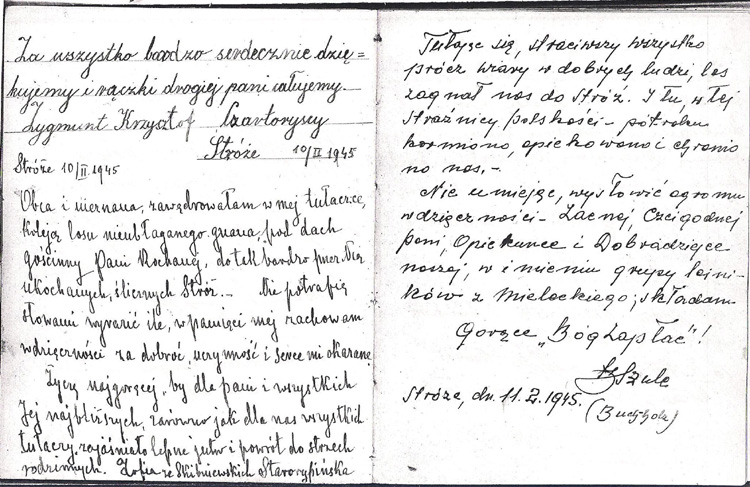 Za wszystko bardzo serdecznie dzię=
kujemy i rączki drogiej pani całujemy.
Zygmunt Krzysztof Czartoryscy
Stróże 10/II 1945
Stróże 10/II 1945
Obca i nieznana, zawędrowałam w mej tułaczce,
koleją losu nieubłaganego gnana, pod dach
gościnny Pani Kochanej, do tak bardzo przez Nią
ukochanych, ślicznych Stróż.- Nie potrafię
słowami wyrazić ile, w pamięci mej zachowam
wdzięczności za dobroć, uczynność i serce mi okazane.
Życzę najgoręcej, by dla pani i wszystkich
Jej najbliższych, zarówno jak dla nas wszystkich
tułaczy, zajaśniało lepsze jutro i powrót do strzech
rodzinnych. Zofia ze Skibniewskich Starorypińska
Tułając się, straciwszy wszystko
prócz wiary w dobrych ludzi, los
zagnał nas do Stróż. I tu, w tej
strażnicy polskości - pół roku
karmiono, opiekowano i chronio
no nas.-
Nie umiejąc, wysłowić ogromu
wdzięczności - Zacnej, Czcigodnej
Pani, Opiekunce i Dobrodziejce
naszej, w imieniu grupy leśni-
ków z Mieleckiego, składam
Gorące "Bóg Zapłać"!
Szulc
Stróże, dn. 11.2.1945.